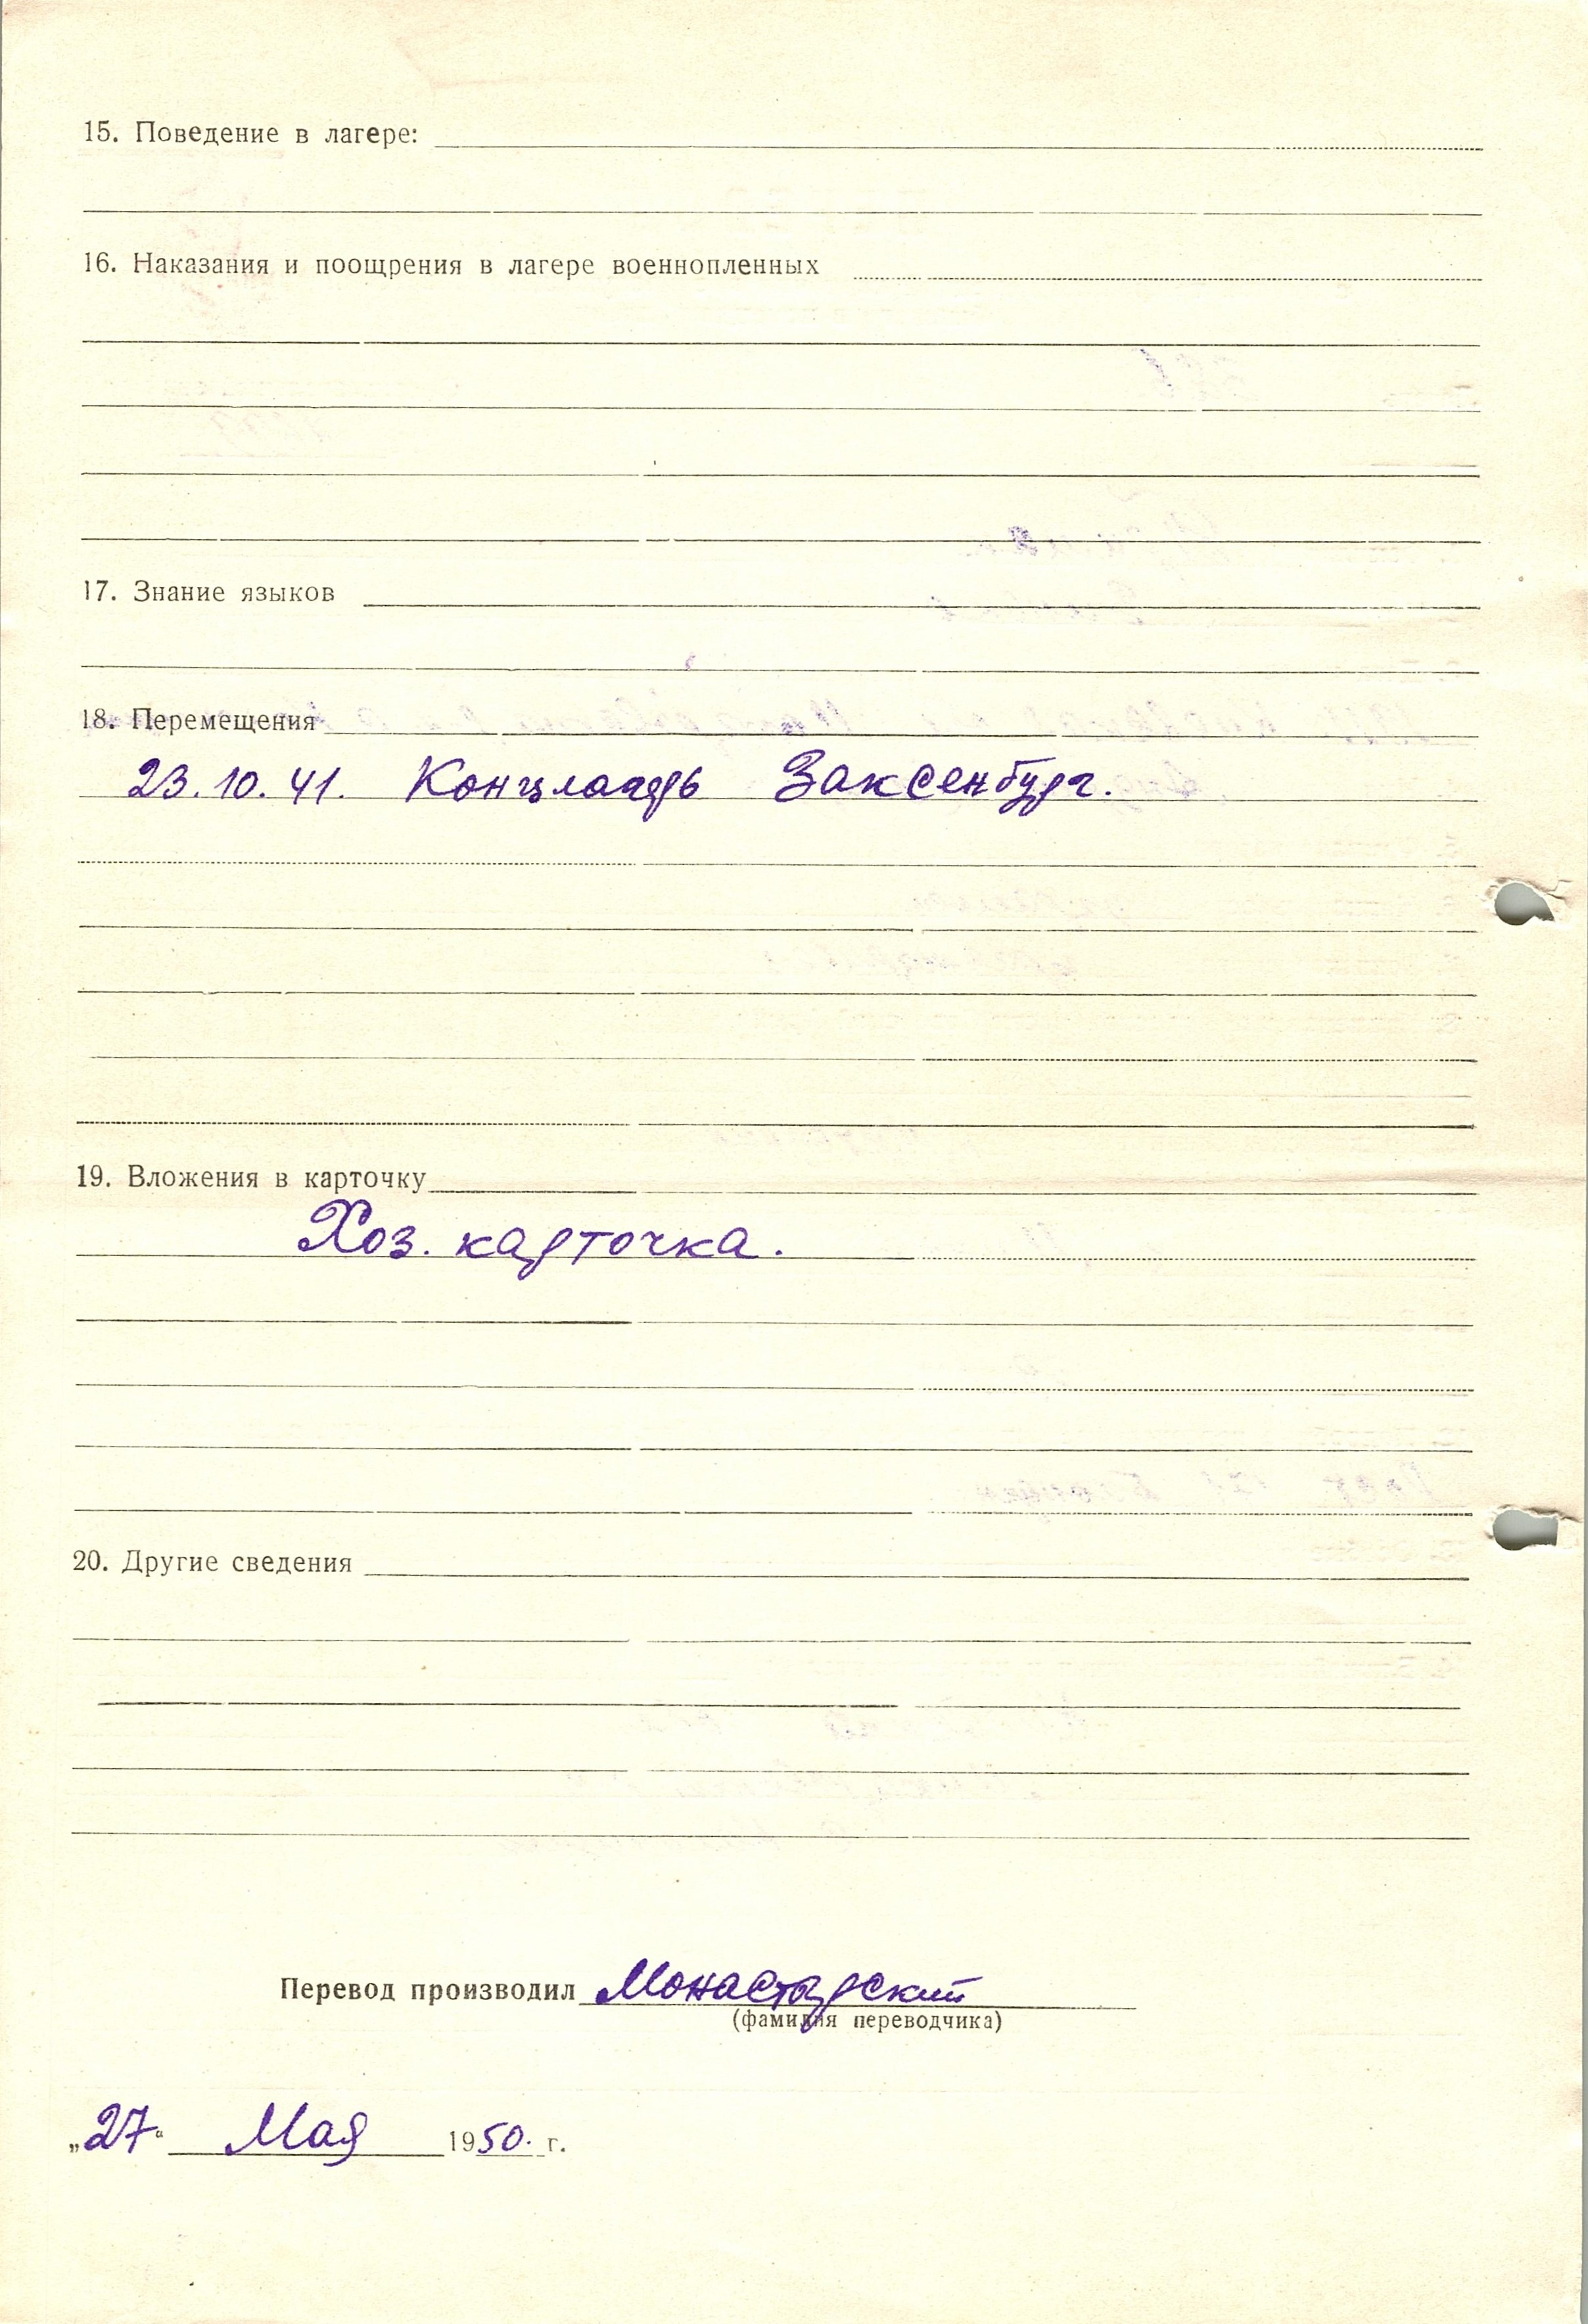 15. Поведение в лагере:
16. Наказания и поощрения в лагере военнопленных
17. Знание языков
18. Перемещения
23.10.41. Концлагерь Заксенбург.
19. Вложения в карточку
Хоз. карточка.
20. Другие сведения
Перевод производил Монастырский
(фамилия переводчика)
„27“ Мая 1950. г.